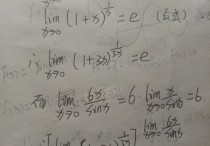 lim x→0 (1+x)^(1/x) = e (公式)
∴ lim x→0 (1+3x)^(1/3x) = e
而 lim x→0 6x/sinx = 6·lim x→0 x/sinx = 6.
lim x→0 6x/sinx